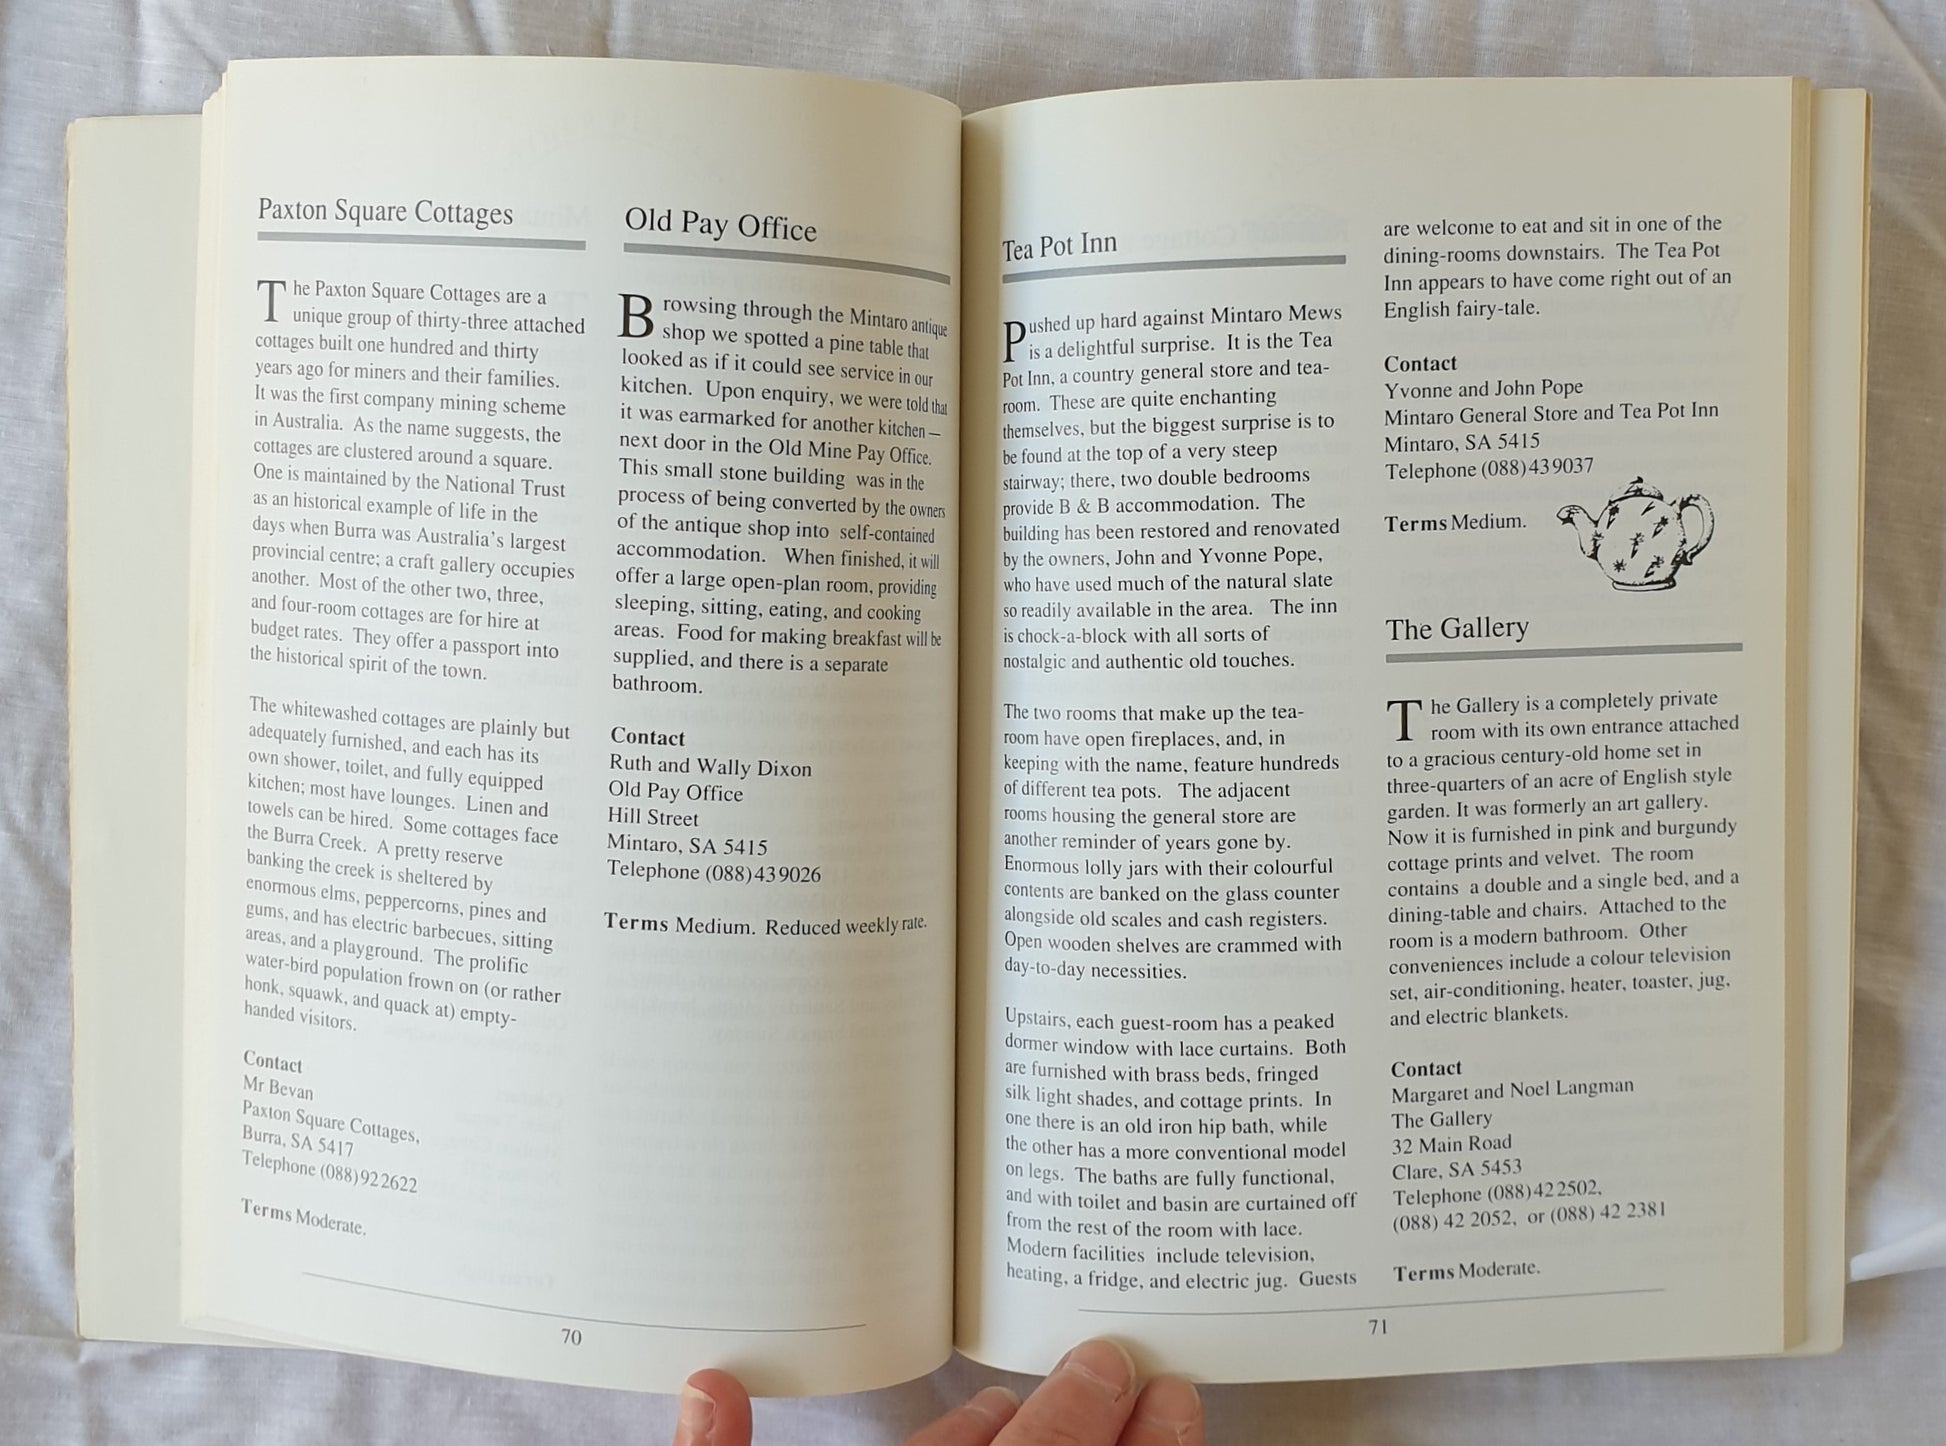 Paxton Square Cottages
The Paxton Square Cottages are a
unique group of thirty-three attached
cottages built one hundred and thirty
years ago for miners and their families.
It was the first company mining scheme
in Australia. As the name suggests, the
cottages are clustered around a square.
One is maintained by the National Trust
as an historical example of life in the
days when Burra was Australia's largest
provincial centre; a craft gallery occupies
another. Most of the other two, three,
and four-room cottages are for hire at
budget rates. They offer a passport into
the historical spirit of the town.
The whitewashed cottages are plainly but
adequately furnished, and each has its
own shower, toilet, and fully equipped
kitchen; most have lounges. Linen and
towels can be hired. Some cottages face
the Burra Creek. A pretty reserve
banking the creek is sheltered by
enormous elms, peppercorns, pines and
gums, and has electric barbecues, sitting
areas, and a playground. The prolific
water-bird population frown on (or rather
honk, squawk, and quack at) empty-
handed visitors.
Contact
Mr Bevan
Paxton Square Cottages,
Burra, SA 5417
Telephone (088)922622
Terms Moderate.
Old Pay Office
Browsing through the Mintaro antique
shop we spotted a pine table that
looked as if it could see service in our
kitchen. Upon enquiry, we were told that
it was earmarked for another kitchen –
next door in the Old Mine Pay Office.
This small stone building was in the
process of being converted by the owners
of the antique shop into self-contained
accommodation. When finished, it will
offer a large open-plan room, providing
sleeping, sitting, eating, and cooking
areas. Food for making breakfast will be
supplied, and there is a separate
bathroom.
Contact
Ruth and Wally Dixon
Old Pay Office
Hill Street
Mintaro, SA 5415
Telephone (088)439026
Terms Medium. Reduced weekly rate.
70
Tea Pot Inn
Pushed up hard against Mintaro Mews
is a delightful surprise. It is the Tea
Pot Inn, a country general store and tea-
room. These are quite enchanting
themselves, but the biggest surprise is to
be found at the top of a very steep
stairway; there, two double bedrooms
provide B & B accommodation. The
building has been restored and renovated
by the owners, John and Yvonne Pope,
who have used much of the natural slate
so readily available in the area. The inn
is chock-a-block with all sorts of
nostalgic and authentic old touches.
The two rooms that make up the tea-
room have open fireplaces, and, in
keeping with the name, feature hundreds
of different tea pots. The adjacent
rooms housing the general store are
another reminder of years gone by.
Enormous lolly jars with their colourful
contents are banked on the glass counter
alongside old scales and cash registers.
Open wooden shelves are crammed with
day-to-day necessities.
Upstairs, each guest-room has a peaked
dormer window with lace curtains. Both
are furnished with brass beds, fringed
silk light shades, and cottage prints. In
one there is an old iron hip bath, while
the other has a more conventional model
on legs. The baths are fully functional,
and with toilet and basin are curtained off
from the rest of the room with lace.
Modern facilities include television,
heating, a fridge, and electric jug. Guests
are welcome to eat and sit in one of the
dining-rooms downstairs. The Tea Pot
Inn appears to have come right out of an
English fairy-tale.
Contact
Yvonne and John Pope
Mintaro General Store and Tea Pot Inn
Mintaro, SA 5415
Telephone (088)439037
Terms Medium.
The Gallery
The Gallery is a completely private
room with its own entrance attached
to a gracious century-old home set in
three-quarters of an acre of English style
garden. It was formerly an art gallery.
Now it is furnished in pink and burgundy
cottage prints and velvet. The room
contains a double and a single bed, and a
dining-table and chairs. Attached to the
room is a modern bathroom. Other
conveniences include a colour television
set, air-conditioning, heater, toaster, jug,
and electric blankets.
Contact
Margaret and Noel Langman
The Gallery
32 Main Road
Clare, SA 5453
Telephone (088)422502,
(088) 42 2052, or (088) 42 2381
Terms Moderate.
71